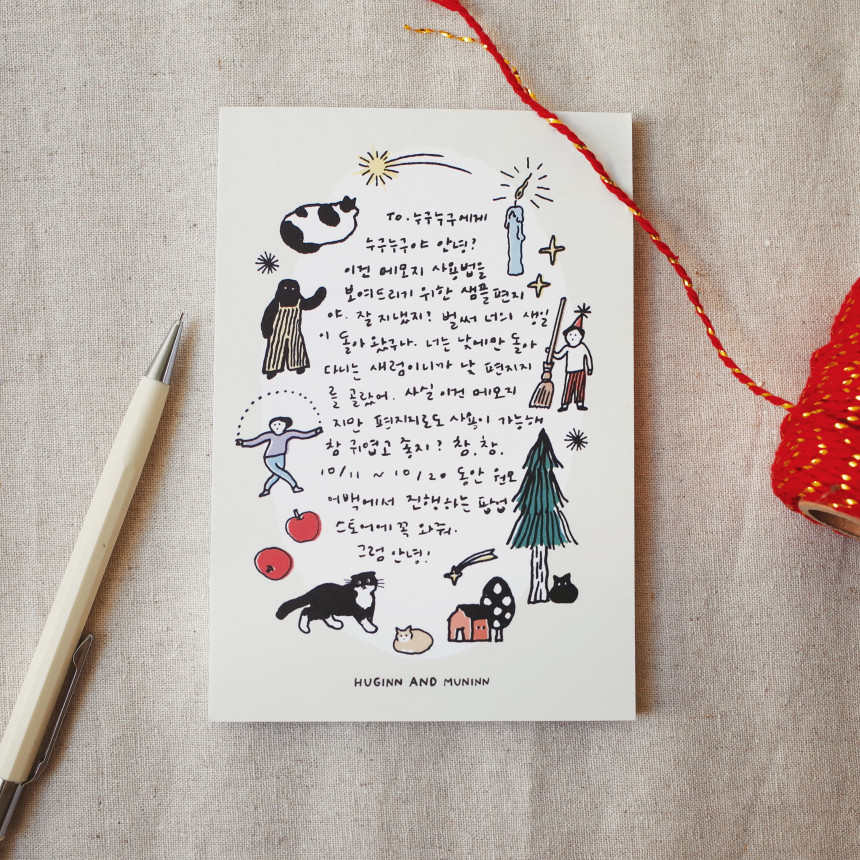 To. 누구누구에게
누구누구야 안녕?
이건 메모지 사용법을
보여드리기 위한 샘플편지
야. 잘 지냈지? 벌써 너의 생일
이 돌아왔구나. 너는 낮에만 돌아
다니는 새럼이니까 날 편지지
를 골랐어. 사실 이건 메모지
지만 편지지로도 사용이 가능해
참 귀엽고 좋지? 참, 참.
10/11 ~ 10/20 동안 원모
어백에서 진행하는 팝업
스토어에 꼭 와줘.
그럼 안녕!
HUGINN AND MUNINN